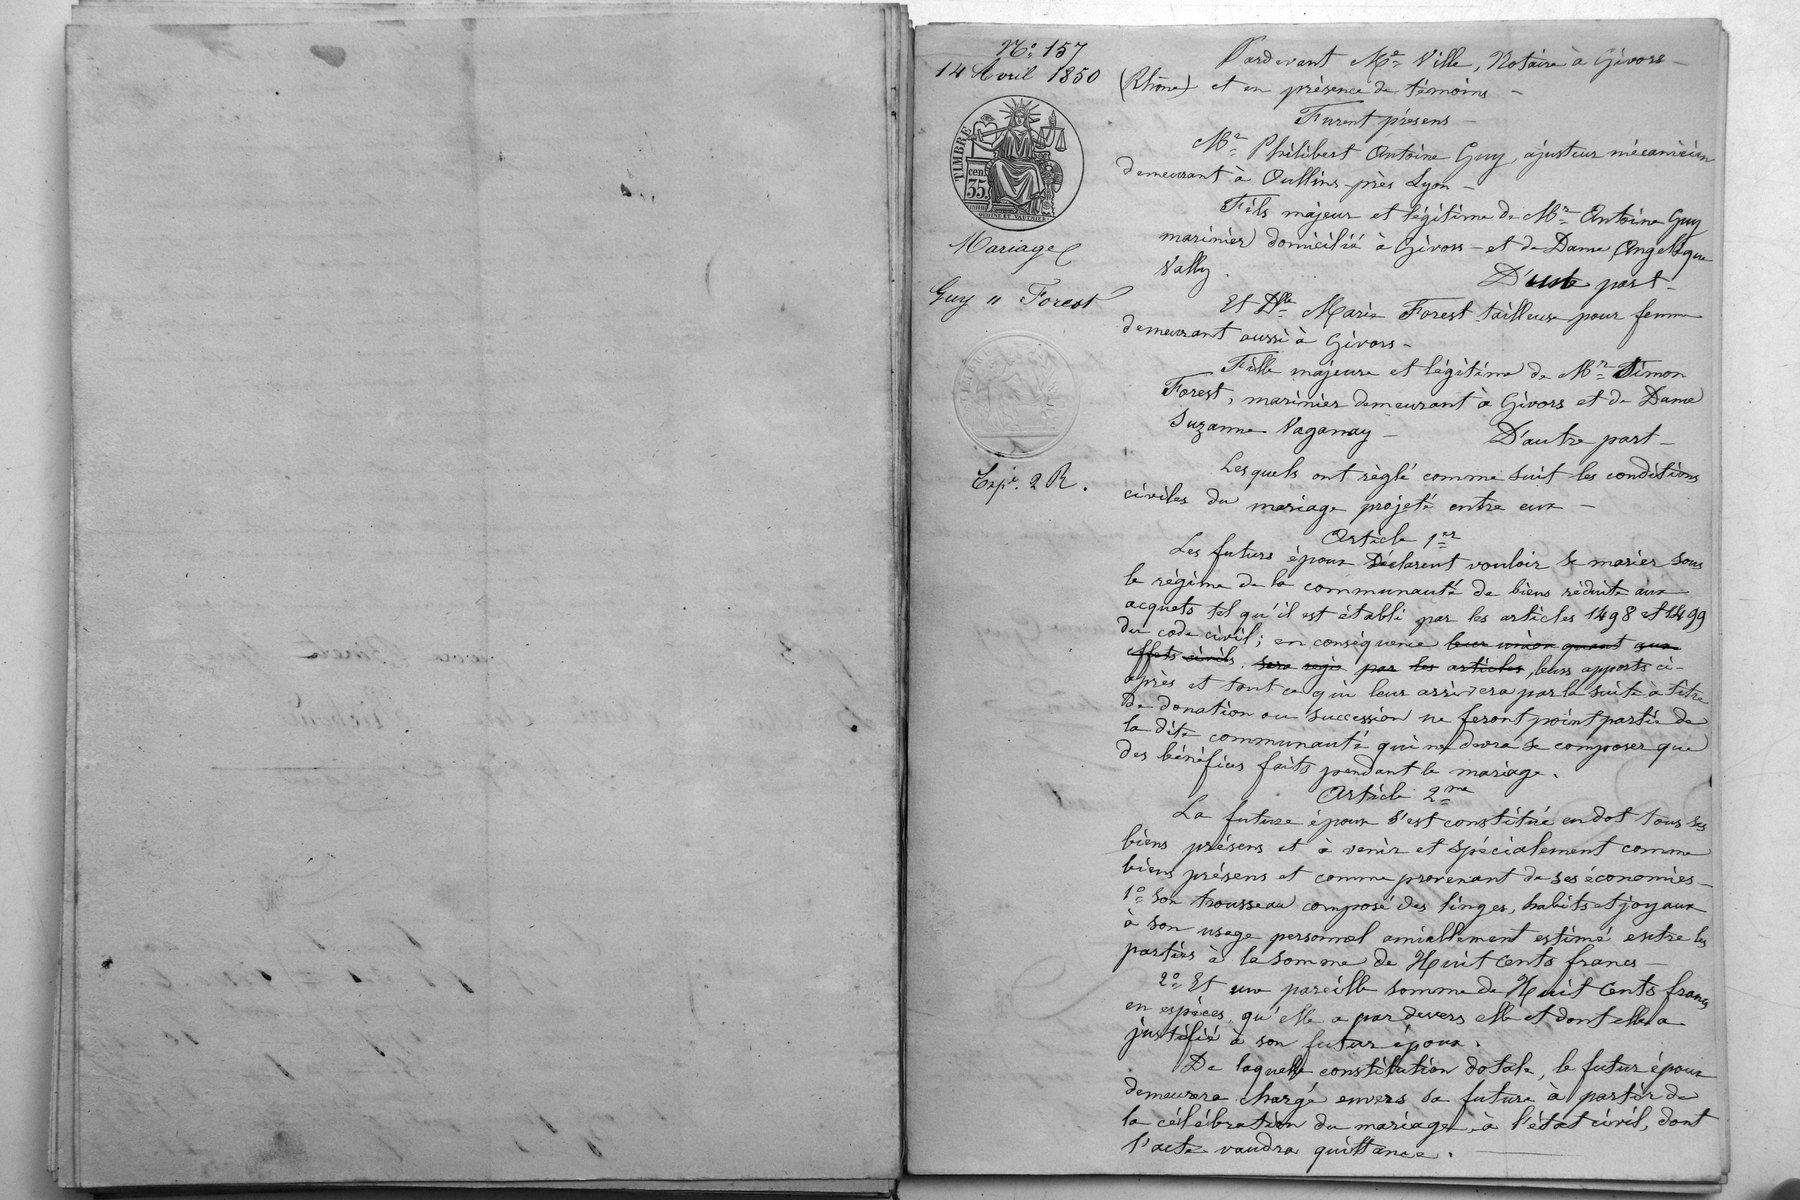 N° 157
14 Avril 1850
TIMBRE
cen.
35
Mariage
Guy " Forest
Expé. 2 R.
Pardevant Me Ville, Notaire à Givors
(Rhône) et en présence de témoins
Furent présens
Mr Philibert Antoine Guy, ajusteur mécanicien
demeurant à Oullins près Lyon
Fils majeur et légitime de Mr Antoine Guy
marinier domicilié à Givors et de Dame Angelique
Vally. D'une part
Et Dlle Marie Forest tailleuse pour femme
demeurant aussi à Givors
Fille majeure et légitime de Mr Simon
Forest, marinier demeurant à Givors et de Dame
Suzanne Vaganay D'autre part
Lesquels ont réglé comme suit les conditions
civiles du mariage projeté entre eux
Article 1er
Les futurs époux déclarent vouloir se marier sous
le régime de la communauté de biens réduite aux
acquets tel qu'il est établi par les articles 1498 et 1499
du code civil; en conséquence leur union quant aux
effets civils sera régie par les articles, leurs apports ci-
après et tout ce qui leur arrivera par la suite à titre
de donation ou succession ne feront point partie de
la dite communauté qui ne devra se composer que
des bénéfices faits pendant le mariage.
Article 2me
La future épouse s'est constitué en dot tous ses
biens présens et à venir et spécialement comme
biens présens et comme provenant de ses économies
1° Son trousseau composé des linges, habits et joyaux
à son usage personnel amiablement estimé entre les
parties à la somme de Huit Cents francs
2° Et une pareille somme de Huit Cents francs
en espèces, qu'elle a par devers elle et dont elle a
justifié à son futur époux.
De laquelle constitution dotale, le futur époux
demeurera chargé envers sa future à partir de
la célébration du mariage, à l'état civil, dont
l'acte vaudra quittance.